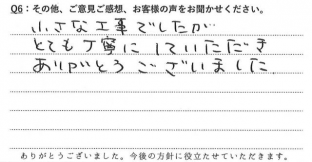 Q6：その他、ご意見ご感想、お客様の声をお聞かせください。
小さな工事でしたが
とても丁寧にしていただき
ありがとうございました
ありがとうございました。今後の方針に役立たせていただきます。